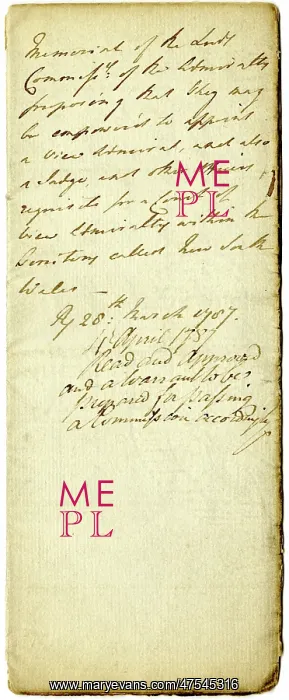 Memorial of the Lords
Commiss.rs of the Admiralty
proposing that they may
be empowered to appoint
a Vice Admiral, and also
a Judge, and other Officers
requisite for a Court of
Vice Admiralty within the
Territory called New South
Wales —
Ry 28.th March 1787.
April 1787
Read and Approved
and a Warrant to be
prepared for passing
a Commission accordingly
ME
PL
ME
PL
www.maryevans.com/47545316